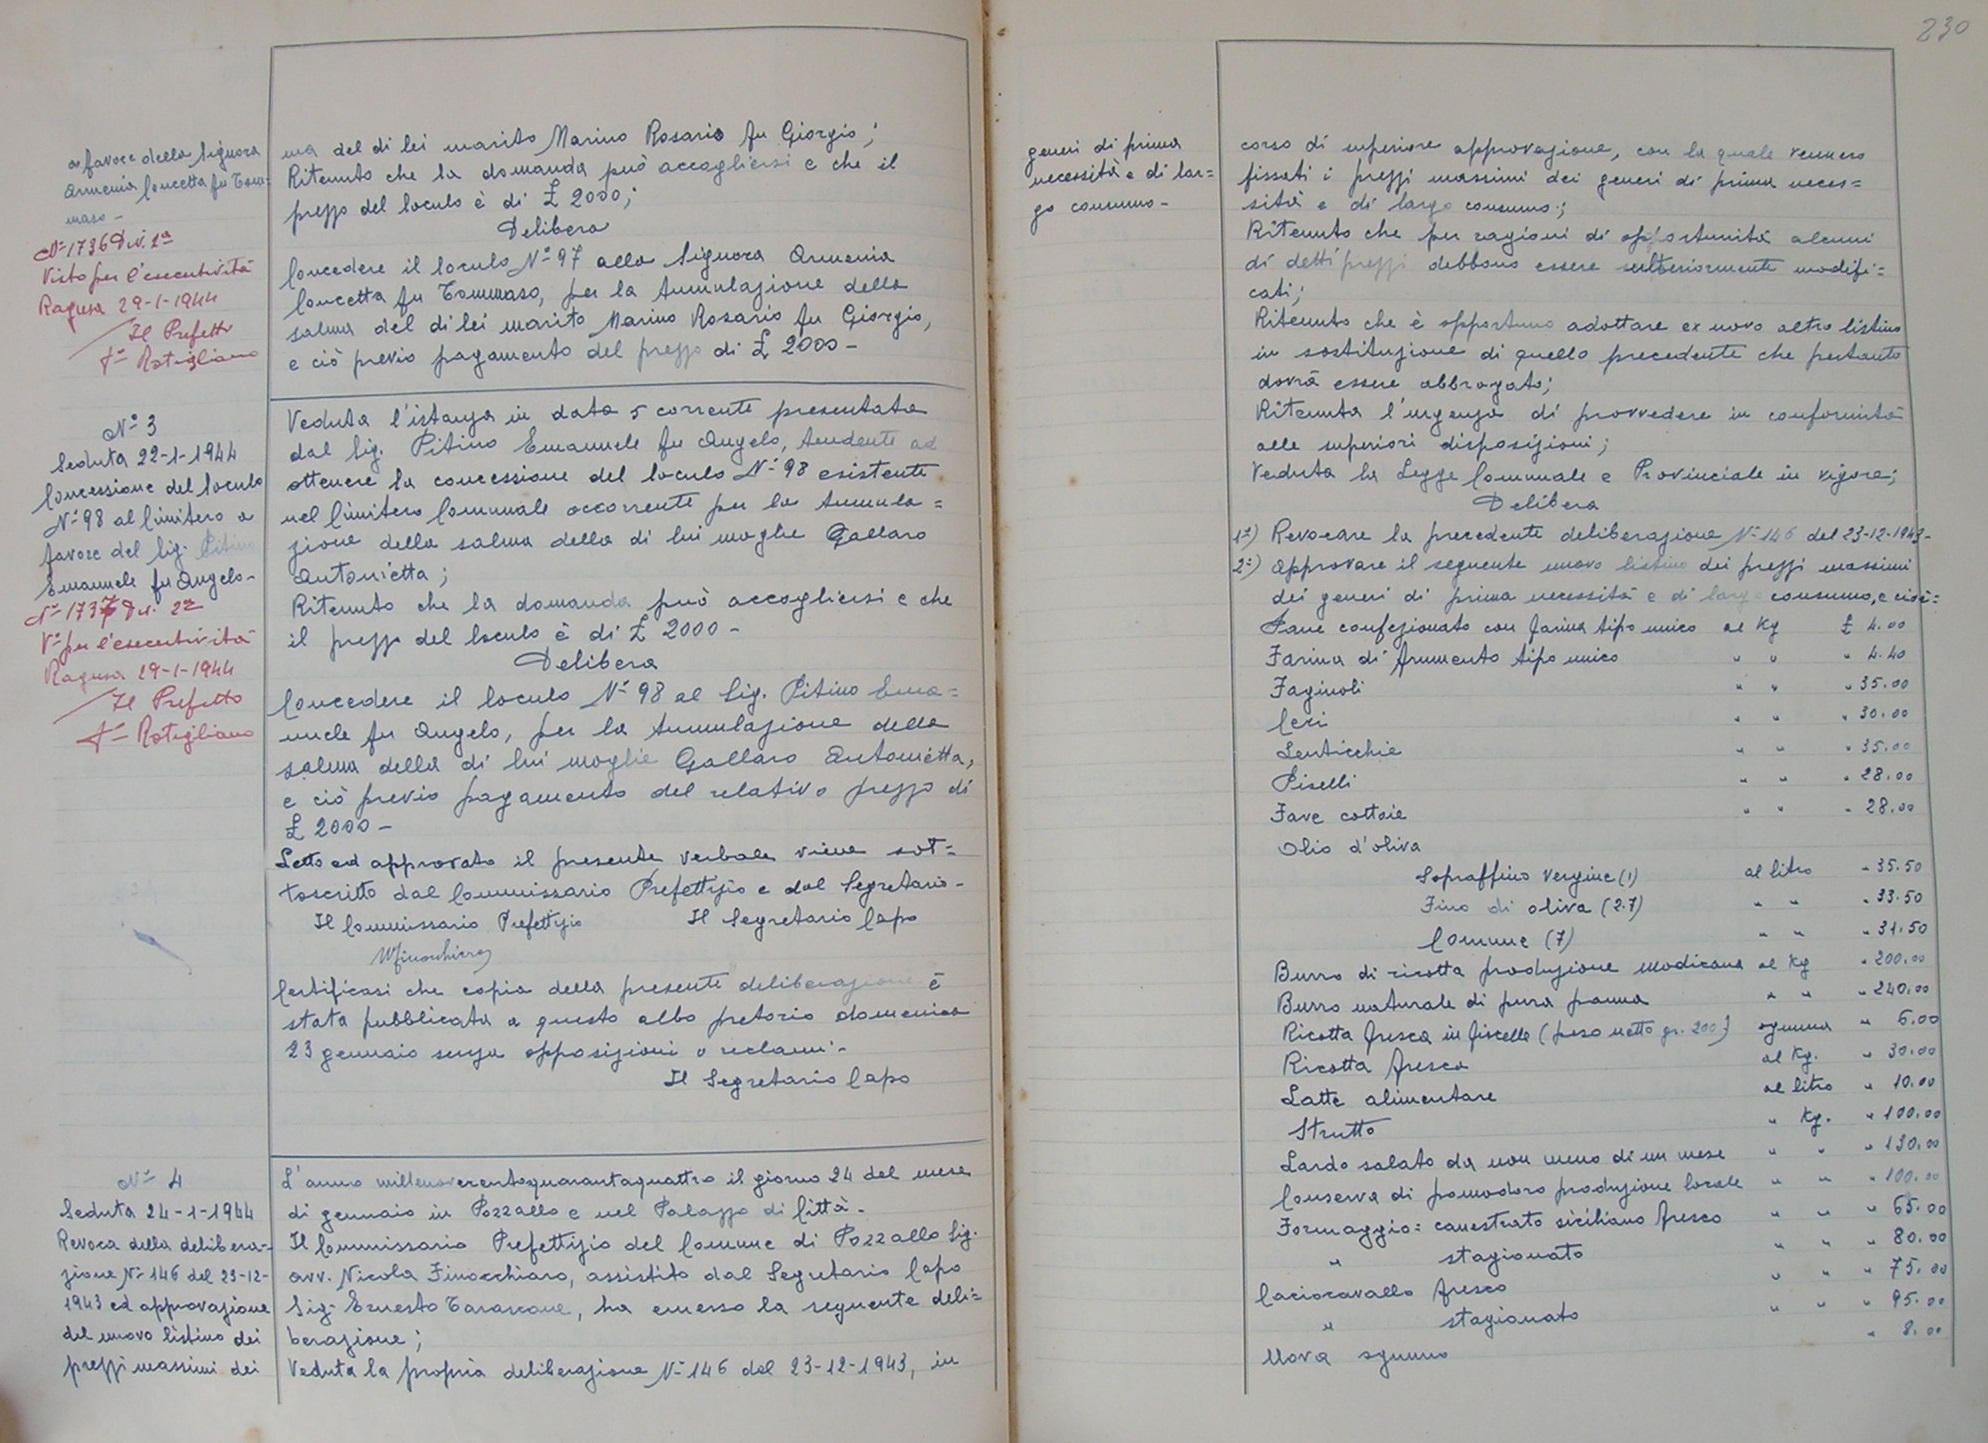 a favore della Signora
Armenia Concetta fu Tom=
maso -
N° 1736 Div. 2ª
Visto per l'esecutività
Ragusa 29-1-1944
Il Prefetto
f° Rotigliano
ma del di lei marito Marino Rosario fu Giorgio;
Ritenuto che la domanda può accogliersi e che il
prezzo del loculo è di £ 2000;
Delibera
Concedere il loculo N° 97 alla Signora Armenia
Concetta fu Tommaso, per la tumulazione della
salma del di lei marito Marino Rosario fu Giorgio,
e ciò previo pagamento del prezzo di £ 2000 -
N° 3
Seduta 22-1-1944
Concessione del loculo
N° 98 al Cimitero a
favore del Sig. Pitino
Emanuele fu Angelo -
N° 1737 Div. 2ª
V° per l'esecutività
Ragusa 29-1-1944
Il Prefetto
f° Rotigliano
Veduta l'istanza in data 5 corrente presentata
dal Sig. Pitino Emanuele fu Angelo, tendente ad
ottenere la concessione del loculo N° 98 esistente
nel Cimitero Comunale occorrente per la tumula=
zione della salma della di lui moglie Gallaro
Antonietta;
Ritenuto che la domanda può accogliersi e che
il prezzo del loculo è di £ 2000 -
Delibera
Concedere il loculo N° 98 al Sig. Pitino Ema=
nuele fu Angelo, per la tumulazione della
salma della di lui moglie Gallaro Antonietta,
e ciò previo pagamento del relativo prezzo di
£ 2000 -
Letto ed approvato il presente verbale viene sot=
toscritto dal Commissario Prefettizio e dal Segretario -
Il Commissario Prefettizio Il Segretario Capo
Certificasi che copia della presente deliberazione è
stata pubblicata a questo albo pretorio domenica
23 gennaio senza opposizioni o reclami -
Il Segretario Capo
N° 4
Seduta 24-1-1944
Revoca della delibera=
zione N° 146 del 23-12-
1943 ed approvazione
del nuovo listino dei
prezzi massimi dei
L'anno millenovecentoquarantaquattro il giorno 24 del mese
di gennaio in Pozzallo e nel Palazzo di Città -
Il Commissario Prefettizio del Comune di Pozzallo Sig.
avv. Nicola Finocchiaro, assistito dal Segretario Capo
Sig. Ernesto Tarascone, ha emesso la seguente deli=
berazione;
Veduta la propria deliberazione N° 146 del 23-12-1943, in
230
generi di prima
necessità e di lar=
go consumo -
corso di superiore approvazione, con la quale vennero
fissati i prezzi massimi dei generi di prima neces=
sità e di largo consumo;
Ritenuto che per ragioni di opportunità alcuni
di detti prezzi debbono essere ulteriormente modifi=
cati;
Ritenuto che è opportuno adottare ex novo altro listino
in sostituzione di quello precedente che pertanto
dovrà essere abbrogato;
Ritenuta l'urgenza di provvedere in conformità
alle superiori disposizioni;
Veduta la Legge Comunale e Provinciale in vigore;
Delibera
1°) Revocare la precedente deliberazione N° 146 del 23-12-1943 -
2°) Approvare il seguente nuovo listino dei prezzi massimi
dei generi di prima necessità e di largo consumo, e cioè:=
Pane confezionato con farina tipo unico al Kg £ 4.00
Farina di frumento tipo unico " " " 4.40
Faginoli " " " 35.00
Ceci " " " 30.00
Lenticchie " " " 35.00
Piselli " " " 28.00
Fave cottoie " " " 28.00
Olio d'oliva
Sopraffino vergine (1) al litro " 35.50
Fino di oliva (2.7) " " " 33.50
Comune (7) " " " 31.50
Burro di ricotta produzione modicana al Kg " 200.00
Burro naturale di pura panna " " " 240.00
Ricotta fresca in fiscelle (peso netto gr. 200) ognuna " 6.00
Ricotta fresca al Kg. " 30.00
Latte alimentare al litro " 10.00
Strutto " Kg. " 100.00
Lardo salato da non meno di un mese " " " 130.00
Conserva di pomodoro produzione locale " " " 100.00
Formaggio: canestrato siciliano fresco " " " 65.00
" stagionato " " " 80.00
Caciocavallo fresco " " " 75.00
" stagionato " " " 95.00
Uova ognuno " 8.00